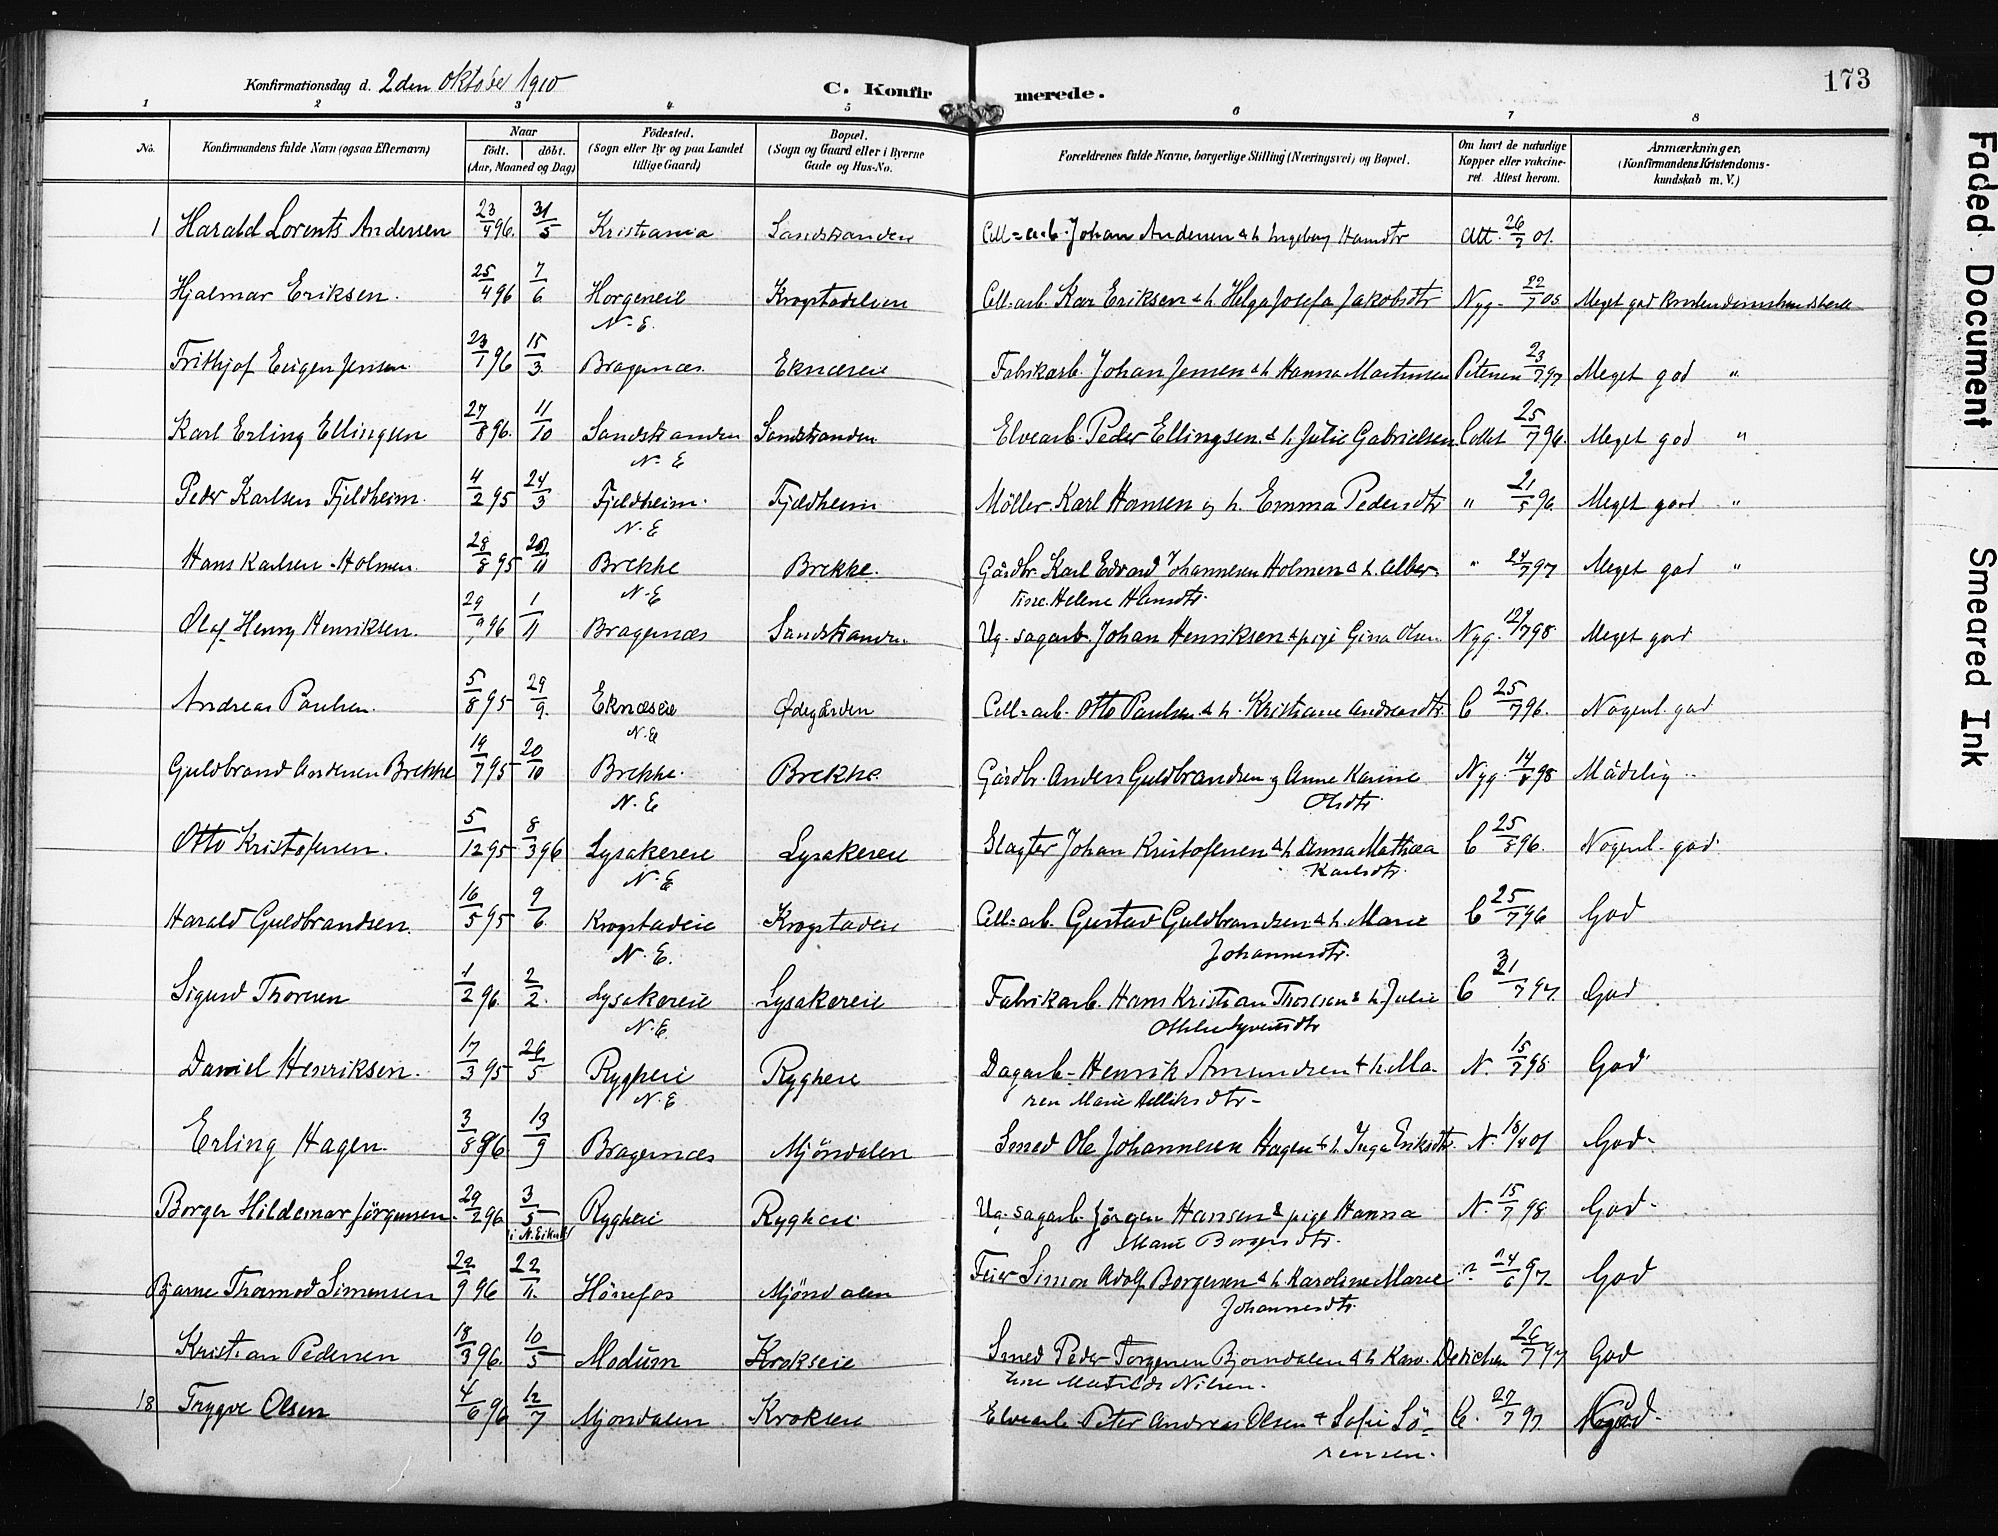 Konfirmationsdag d. 2den Oktober 1910
C. Konfirmerede.
173
1 2 3 4 5 6 7 8
No.
Konfirmandens fulde Navn (ogsaa Efternavn)
Naar
födt. döbt.
(Aar, Maaned og Dag)
Födested.
(Sogn eller By og paa Landet
tillige Gaard)
Bopæl.
(Sogn og Gaard eller i Byerne
Gade og Hus-No.
Forældrenes fulde Navne, borgerlige Stilling (Næringsvei) og Bopæl.
Om havt de naturlige
Kopper eller vakcine-
ret. Attest herom.
Anmærkninger.
(Konfirmandens Kristendoms-
kundskab m. V.)
1 Harald Lorents Andersen 23/4 96. 31/5 Kristiania Sandstranden Cell=arb. Johan Andersen & h. Ingeborg Hansdtr Att. 26/7 01.
Hjalmar Eriksen. 25/4 96 7/6 Horgeneie Krogstadelien Cell-arb. Kar Eriksen & h. Helga Josefa Jakobsdtr Nyg- 22/7 05 Meget god Kristendomskundskab
N. E.
Frithjof Eugen Jensen 23/1 96 15/3 Bragernæs Eknæseie Fabrikarb. Johan Jensen & h Hanna Martinsen Petersen 23/7 97 Meget god "
Karl Erling Ellingsen 27/8 96. 11/10 Sandstranden Sandstranden Elvearb. Peder Ellingsen & h. Julie Gabrielsen Collet 25/7 96. Meget god "
N. E
Peder Karlsen Fjeldheim. 4/2 95 24/3 Fjeldheim. Fjeldheim Möller Karl Hansen og h. Emma Pedersdtr " 21/5 96. Meget god "
N. E
Hans Karlsen Holmen 28/8 95 20/10 Brekke Brekke. Gårdbr. Karl Edvard Johannesen Holmen & h. Alber- " 24/7 97 Meget god "
N. E
tine Helene Hansdtr.
Olaf Henry Henriksen. 29/9 96 1/11 Bragernæs Sandstranden Ug. sagarb. Johan Henriksen & pige Gina Olsen Nyg. 12/7 98 Meget god
Andreas Paulsen. 5/8 95 29/9. Eknæseie Ødegården Cell=arb. Otto Paulsen & h. Kristiane Andreasdtr. C 25/7 96. Nogenl. god
N. E
Guldbrand Andersen Brekke 19/7 95 20/10 Brekke. Brekke Gårdbr. Anders Guldbrandsen og Anne Karine Nyg. 14/8 98 Mådelig
N. E
Olsdtr.
Otto Kristofersen. 5/12 95 8/3 96 Lysakereie Lysakereie Slagter Johan Kristofersen & h Anna Mathea C 25/8 96. Nogenl. god.
N. E
Karlsdtr.
Harald Guldbrandsen. 16/5 95 9/6. Krogstadeie Krogstadeie Cell=arb. Gustav Guldbrandsen & h. Marie C 25/7 96 God
N. E.
Johannesdtr.
Sigurd Thoresen 1/2 96. 2/2. Lysakereie Lysakereie Fabrikarb. Hans Kristian Thoresen & h. Julie C 31/7 97. God
N. E.
Daniel Henriksen. 17/3 95 26/5 Rygheie Rygheie Dagarb- Henrik Amundsen & h. Ma- N. 15/7 98 God
N. E
ren Marie Helliksdtr-
Erling Hagen. 3/8 96 13/9 Bragernæs Mjöndalen Smed Ole Johannesen Hagen & h. Inga Eriksdtr. N. 18/4 01 God-
Borger Hildemar Jörgensen. 29/2 96 3/5 Rygheie Rygheie Ug. sagarb. Jörgen Hansen & pige Hanna N. 15/7 98 God-
i N. Eiker
Marie Borgersdtr.
Bjarne Thormod Simensen 22/9 96 22/11. Hönefos Mjöndalen Feier Simon Adolf Borgersen & h Karoline Marie ? 24/6 97 God
Johannesdtr.
Kristian Pedersen 18/3 96. 10/5 Modum Krokseie Smed Peder Torgersen Bjorndalen & h. Karo- Detichen 26/7 97 God
line Matilde Nilsen.
18 Trygve Olsen 4/6 96 12/7 Mjondalen Krokseie Elvearb Peter Andreas Olsen & Sofie Sö= C. 27/7 97.
rensen.
Faded Document
Smeared Ink